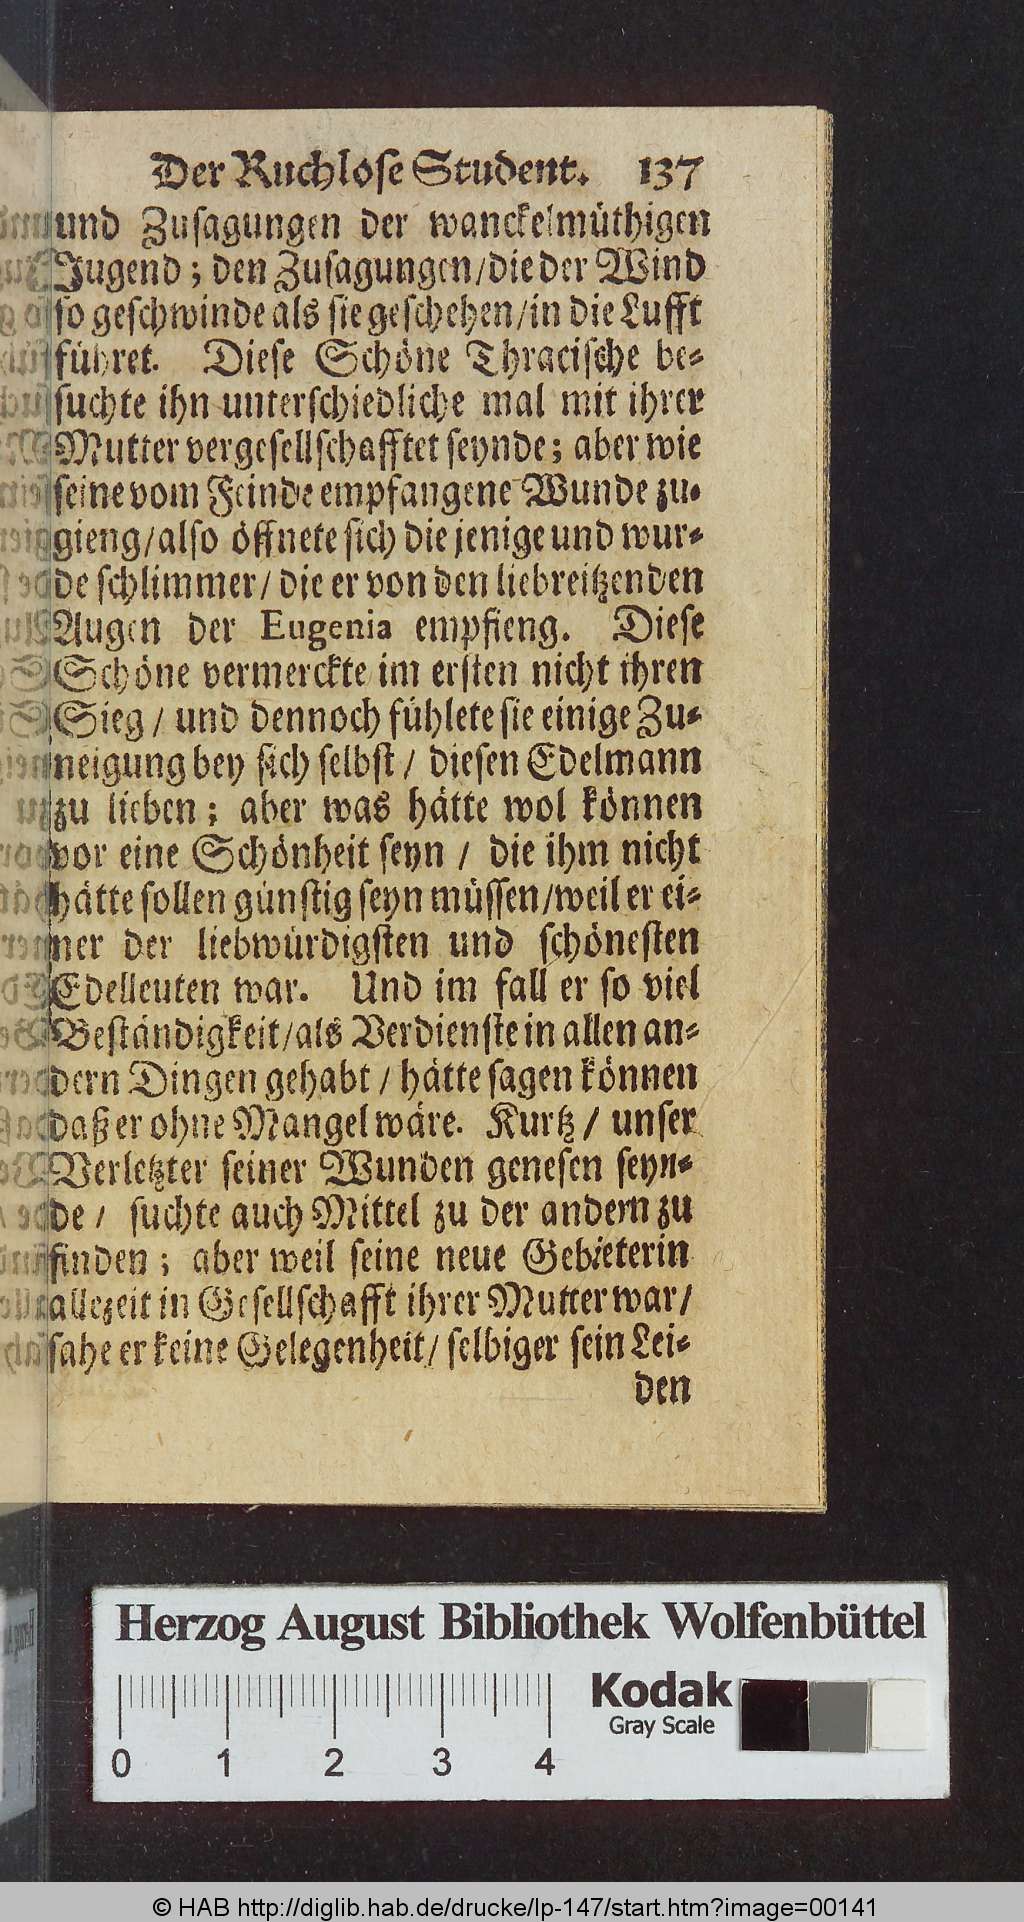 Der Ruchlose Student. 137
und Zusagungen der wanckelmüthigen
Jugend; den Zusagungen/die der Wind
so geschwinde als sie geschehen/in die Lufft
führet. Diese Schöne Thracische be-
suchte ihn unterschiedliche mal mit ihrer
Mutter vergesellschafftet seynde; aber wie
seine vom Feinde empfangene Wunde zu-
gieng/also öffnete sich die jenige und wur-
de schlimmer/ die er von den liebreitzenden
Augen der Eugenia empfieng. Diese
Schöne vermerckte im ersten nicht ihren
Sieg / und dennoch fühlete sie einige Zu-
neigung bey sich selbst / diesen Edelmann
zu lieben; aber was hätte wol können
vor eine Schönheit seyn / die ihm nicht
hätte sollen günstig seyn müssen/weil er ei-
ner der liebwürdigsten und schönesten
Edelleuten war. Und im fall er so viel
Beständigkeit/als Verdienste in allen an-
dern Dingen gehabt / hätte sagen können
daß er ohne Mangel wäre. Kurtz / unser
Verletzter seiner Wunden genesen seyn-
de / suchte auch Mittel zu der andern zu
finden; aber weil seine neue Gebieterin
allezeit in Gesellschafft ihrer Mutter war/
sahe er keine Gelegenheit/ selbiger sein Lei-
den
Herzog August Bibliothek Wolfenbüttel
Kodak
Gray Scale
0 1 2 3 4
© HAB http://diglib.hab.de/drucke/lp-147/start.htm?image=00141